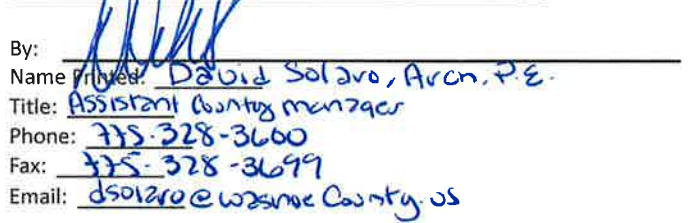 By:
Name Printed: David Solaro, Arch, P.E.
Title: Assistant County Manager
Phone: 775-328-3600
Fax: 775-328-3699
Email: dsolaro@washoeCounty.us